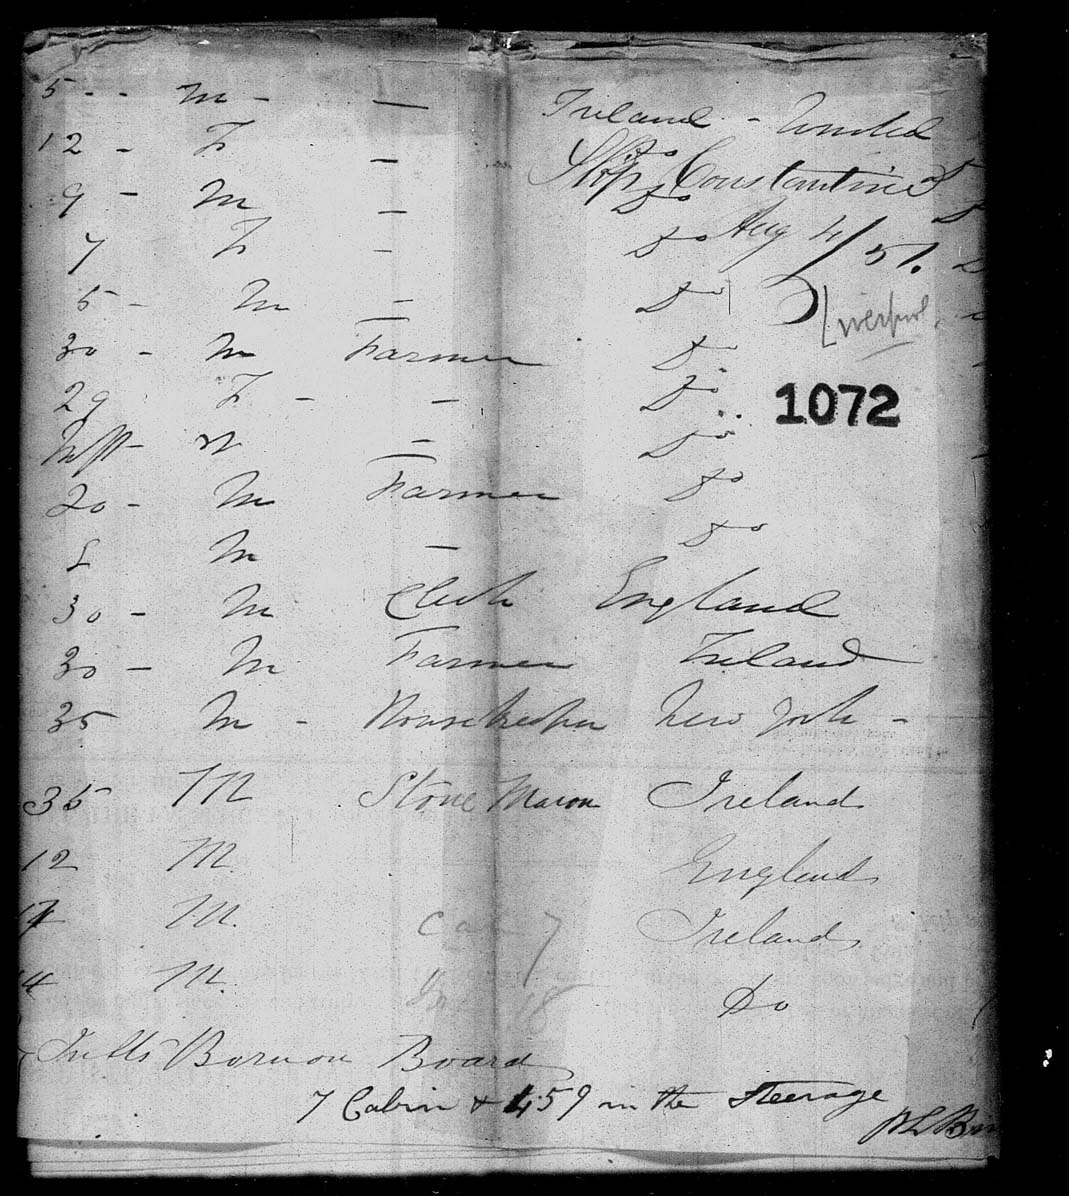 5 - - M - — Ireland - United
12 - F — Do
Ship Constantine
9 - M — Do
Aug 4/51.
7 F — Do
5 - M — Do
Liverpool
30 - M Farmer Do
29 F - — Do
1072
Inft - M — Do
20 - M Farmer Do
2 M — Do
30 - M Clerk England
30 - M Farmer Ireland
35 M - House Keeper New York -
35 M Stone Mason Ireland
12 M. England
17 M. Ireland
Cab 7
4 M. Do
Inf 18
Infts Born on Board
7 Cabin & 459 in the Steerage